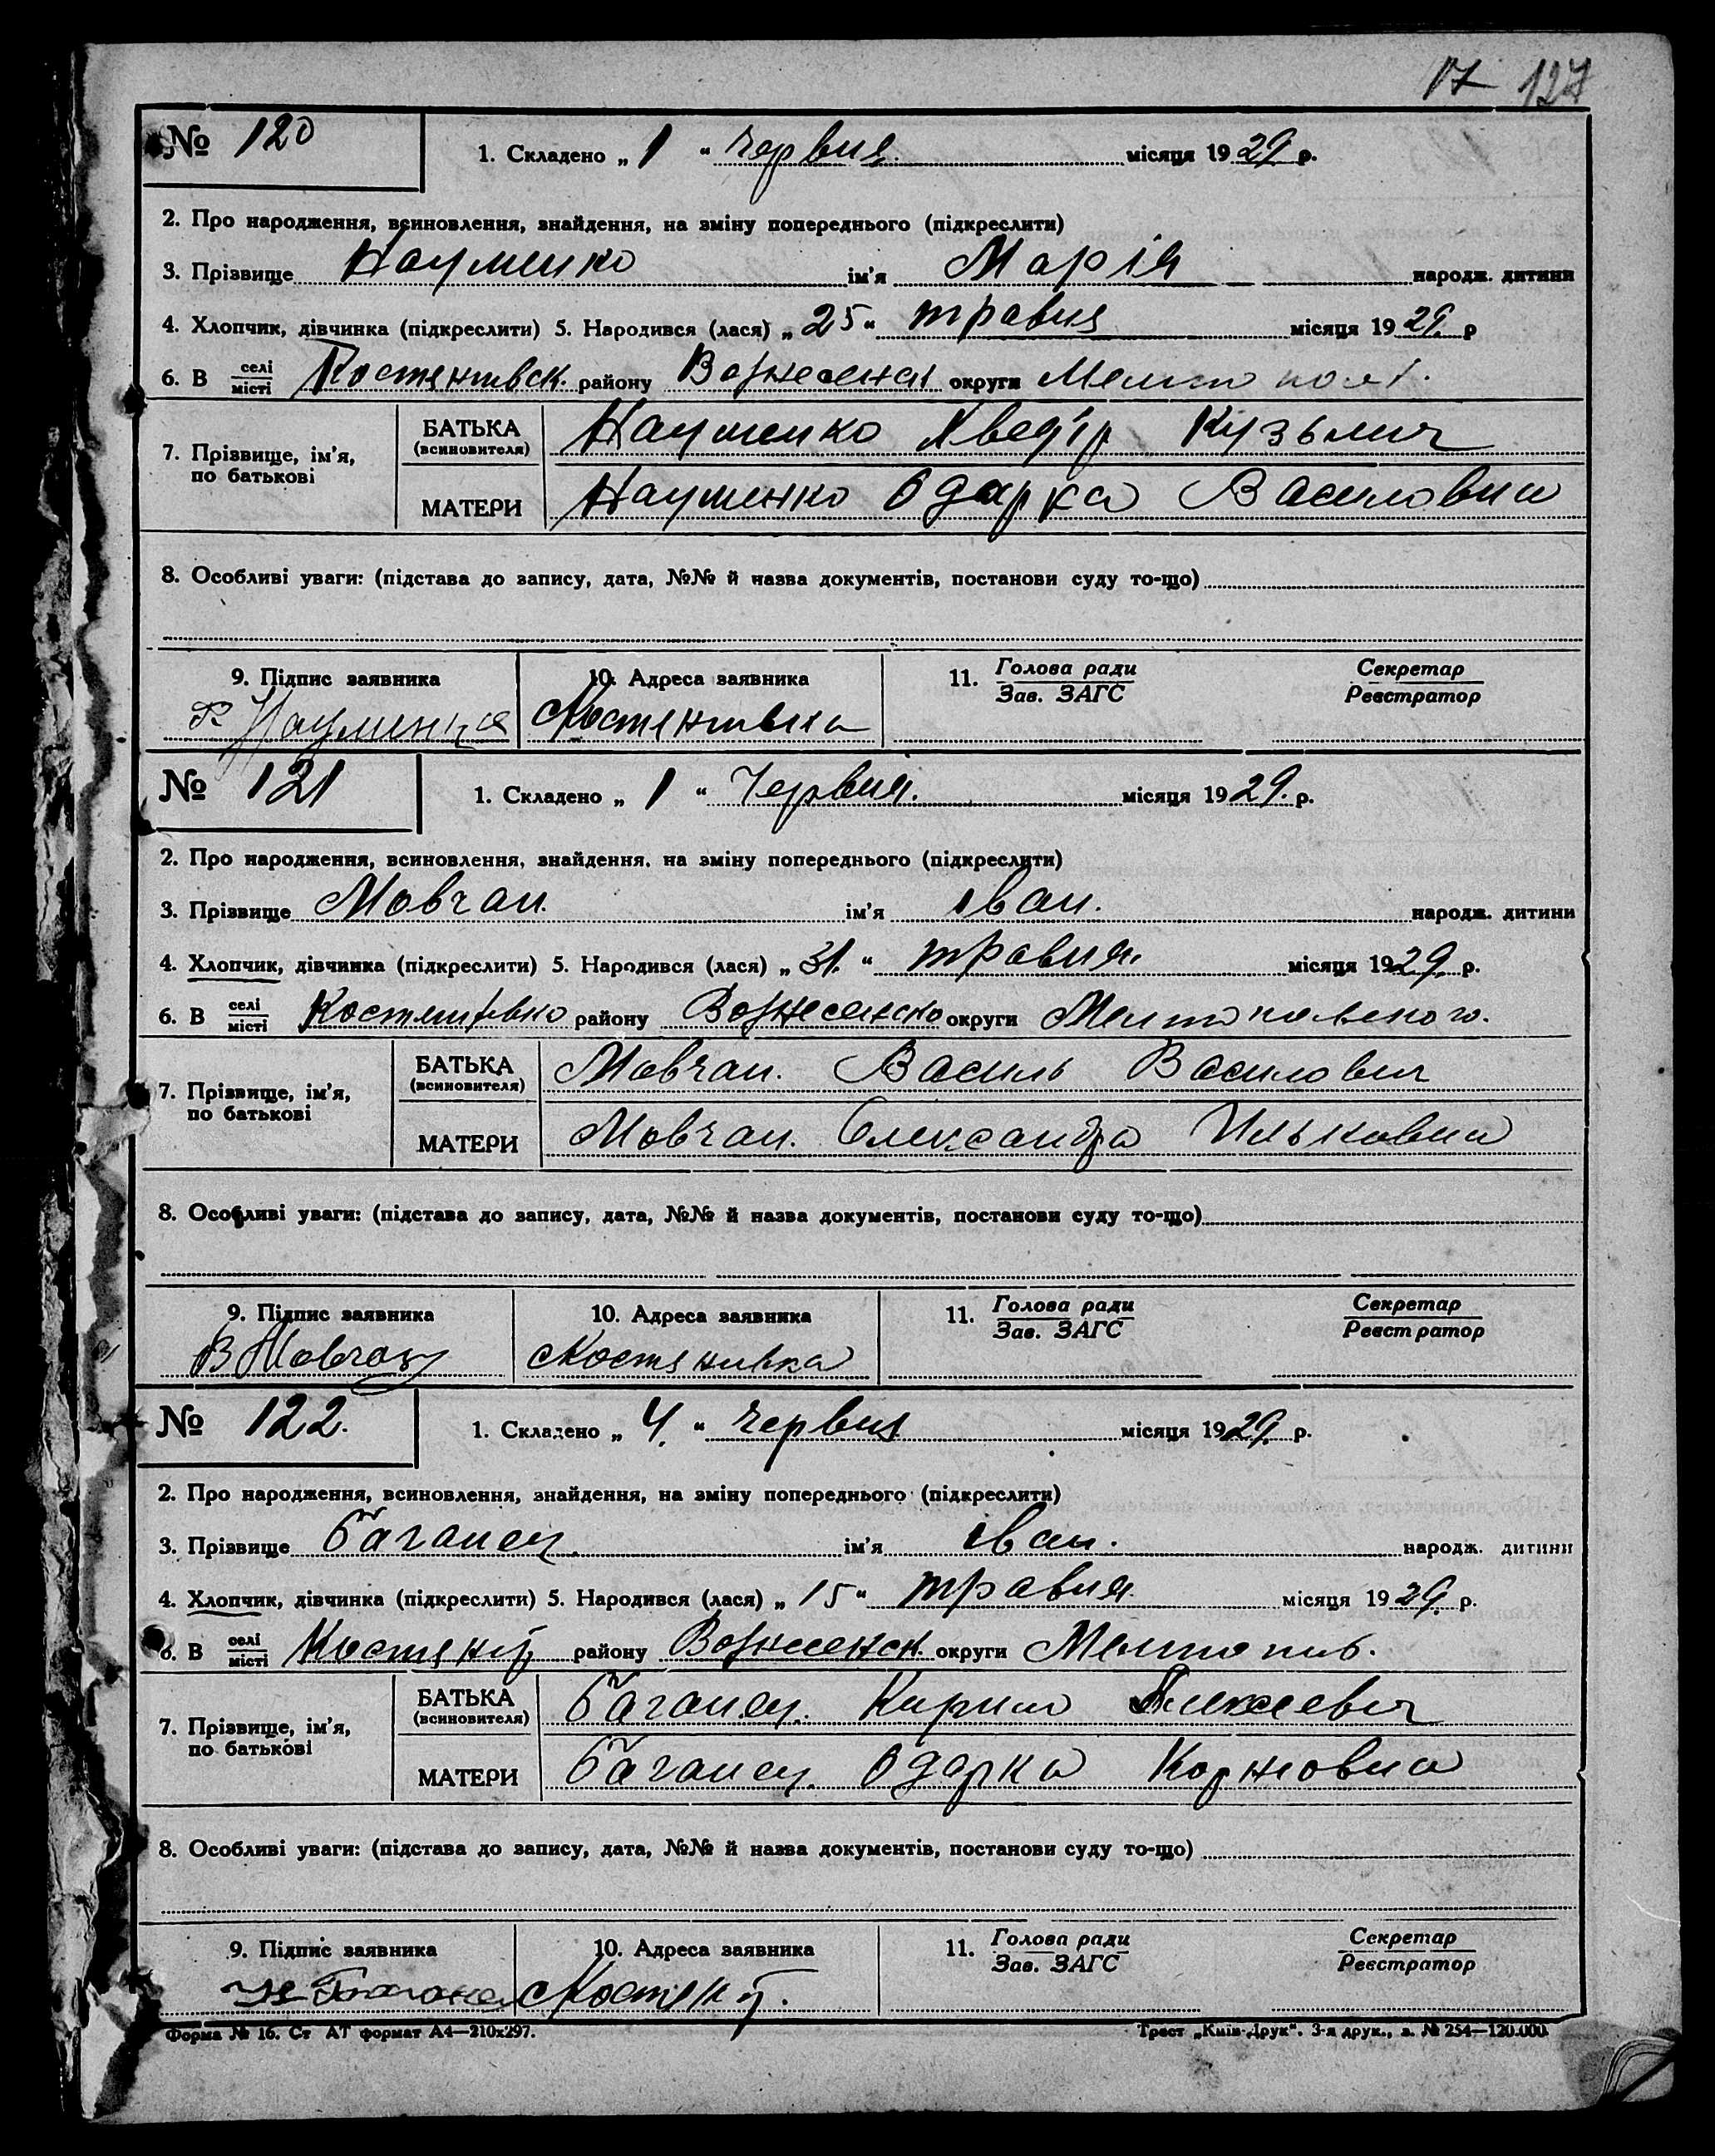 17 127
№ 120 1. Складено „ 1 “ червня місяця 1929 р.
2. Про народження, всиновлення, знайдення, на зміну попереднього (підкреслити)
3. Прізвище Науменко ім’я Марія народж. дитини
4. Хлопчик, дівчинка (підкреслити) 5. Народився (лася) „ 25 “ травня місяця 1929. р
6. В селі/місті Костянтивск. району Вознесенск округи Мелитопол.
7. Прізвище, ім’я, по батькові
БАТЬКА (всиновителя) Науменко Хведір Кузьмич
МАТЕРИ Науменко Одарка Василовна
8. Особливі уваги: (підстава до запису, дата, №№ й назва документів, постанови суду то-що)
9. Підпис заявника 10. Адреса заявника 11. Голова ради/Зав. ЗАГС Секретар/Реєстратор
Костянтивка
№ 121 1. Складено „ 1 “ Червня. місяця 1929. р.
2. Про народження, всиновлення, знайдення, на зміну попереднього (підкреслити)
3. Прізвище Мовчан. ім’я іван. народж. дитини
4. Хлопчик, дівчинка (підкреслити) 5. Народився (лася) „ 31. “ травня. місяця 1929. р.
6. В селі/місті району Вознесенско округи Мелитопольского.
7. Прізвище, ім’я, по батькові
БАТЬКА (всиновителя) Мовчан. Василь Василович
МАТЕРИ Мовчан. Олександра Ильковна
8. Особливі уваги: (підстава до запису, дата, №№ й назва документів, постанови суду то-що)
9. Підпис заявника 10. Адреса заявника 11. Голова ради/Зав. ЗАГС Секретар/Реєстратор
В Мовчан Костянивка
№ 122. 1. Складено „ 4. “ червня місяця 1929. р.
2. Про народження, всиновлення, знайдення, на зміну попереднього (підкреслити)
3. Прізвище Баганец. ім’я іван. народж. дитини
4. Хлопчик, дівчинка (підкреслити) 5. Народився (лася) „ 15 “ травня. місяця 1929. р.
6. В селі/місті Костянт району Вознесенск. округи
7. Прізвище, ім’я, по батькові
БАТЬКА (всиновителя) Баганец. Кирило Алексеевич
МАТЕРИ Баганец. Одарка Корнеовна
8. Особливі уваги: (підстава до запису, дата, №№ й назва документів, постанови суду то-що)
9. Підпис заявника 10. Адреса заявника 11. Голова ради/Зав. ЗАГС Секретар/Реєстратор
Костянт.
Форма № 16. Ст АТ формат А4—210х297. Трест „Київ-Друк“. 3-я друк., з. № 254—120.000.